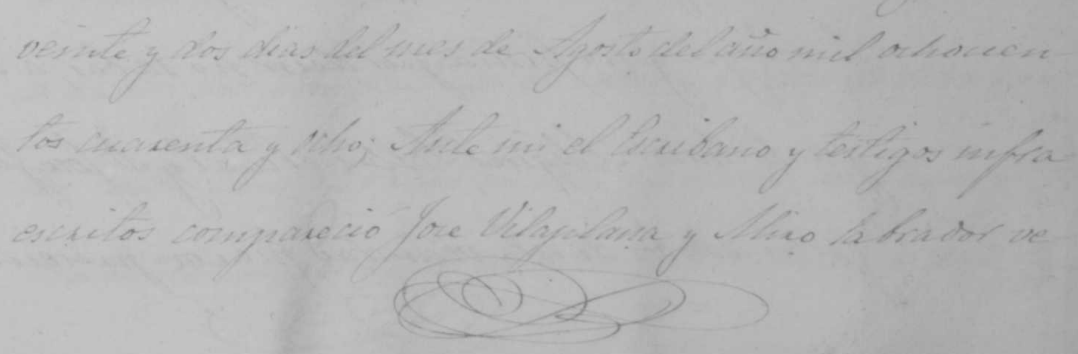 veinte y dos dias del mes de Agosto del año mil ochocien
tos cuarenta y ocho; Ante mi el Escribano y testigos infra
escritos compareció Jose Vilaplana y Miro labrador ve